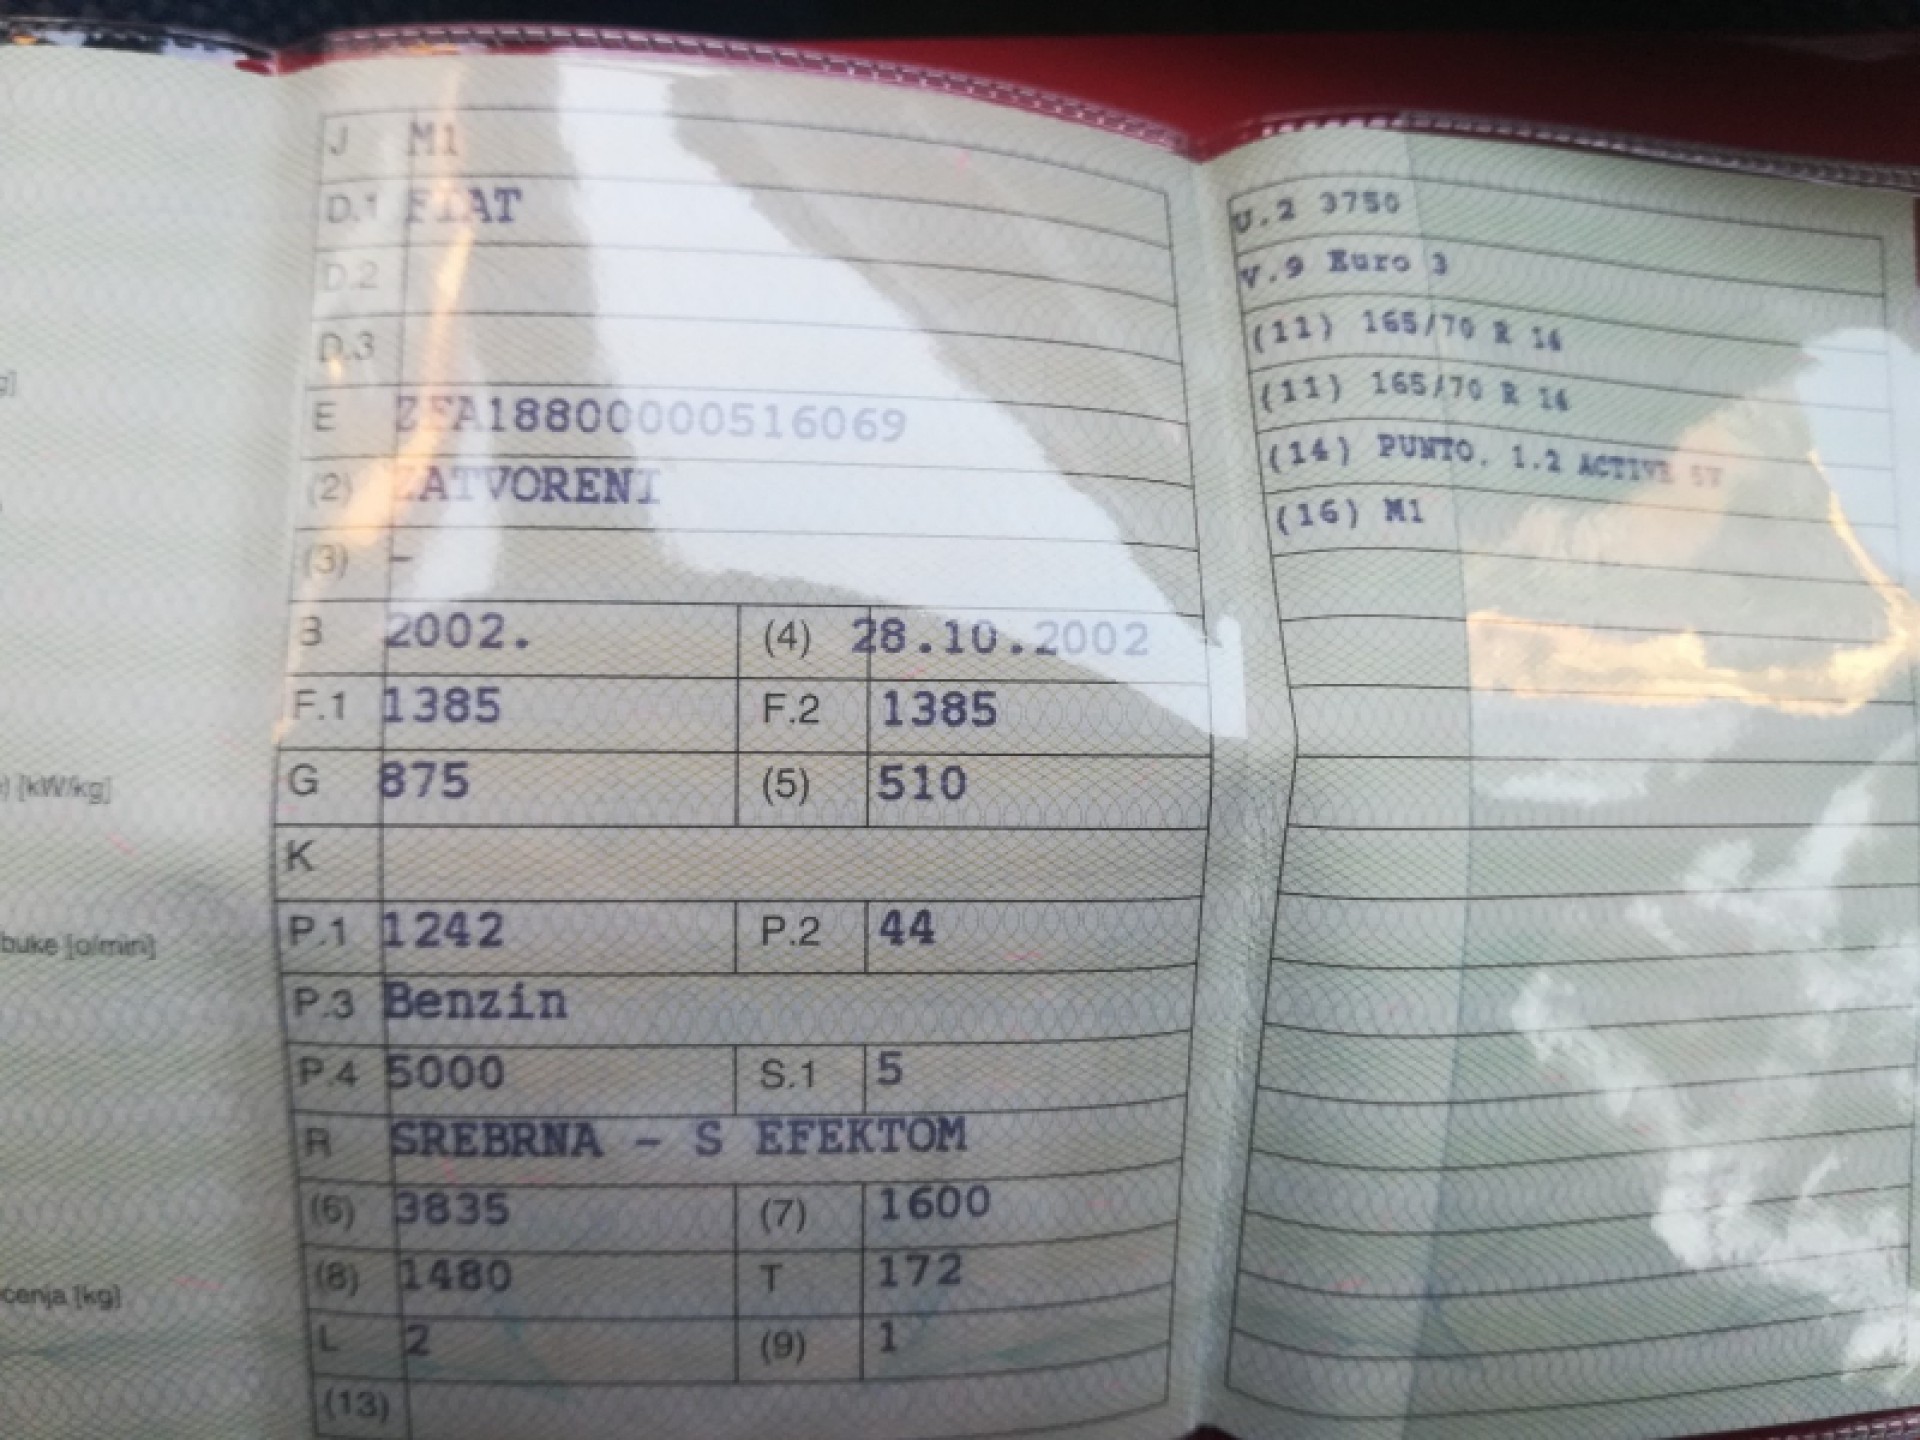 g]
) [kW/kg]
buke [o/min]
cenja [kg]
J M1
D.1 FIAT
D.2
D.3
E ZFA18800000516069
(2) ZATVORENI
(3) -
B 2002. (4) 28.10.2002
F.1 1385 F.2 1385
G 875 (5) 510
K
P.1 1242 P.2 44
P.3 Benzin
P.4 5000 S.1 5
R SREBRNA - S EFEKTOM
(6) 3835 (7) 1600
(8) 1480 T 172
L 2 (9) 1
(13)
U.2 3750
V.9 Euro 3
(11) 165/70 R 14
(11) 165/70 R 14
(14) PUNTO. 1.2 ACTIVE 5V
(16) M1